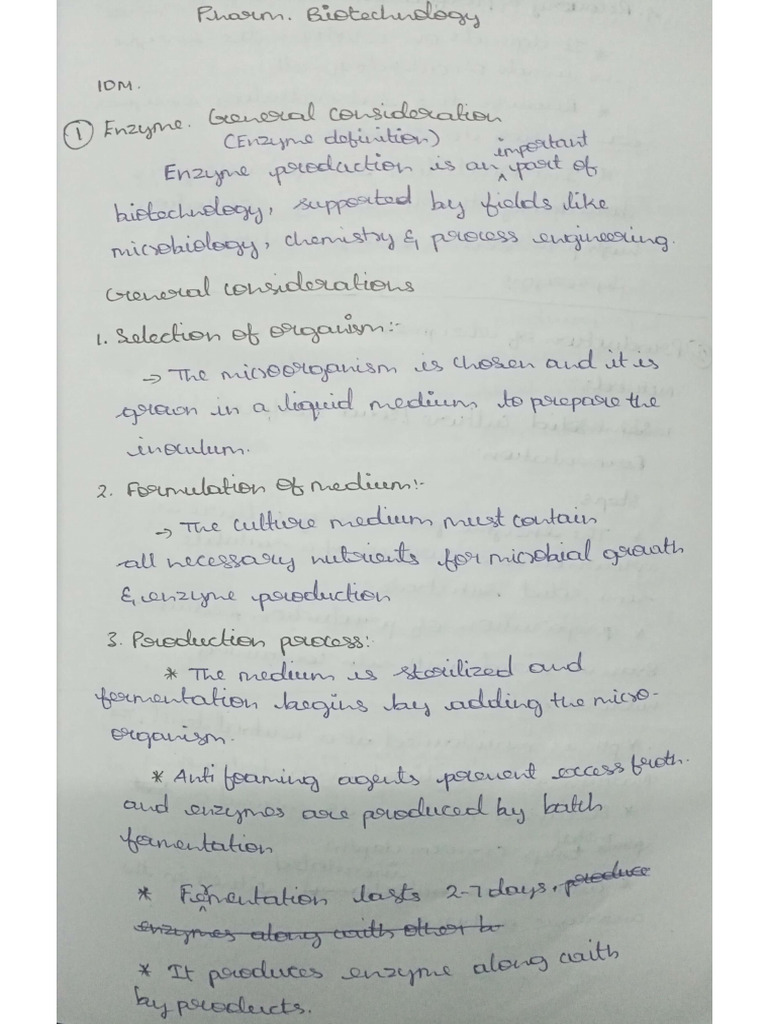 Pharm. Biotechnology
10M.
① Enzyme. General consideration
(Enzyme definition)
important
Enzyme production is an ^ part of
biotechnology, supported by fields like
microbiology, chemistry & process engineering.
General considerations
1. Selection of organism:-
→ The microorganism is chosen and it is
grown in a liquid medium to prepare the
inoculum.
2. Formulation of medium:-
→ The culture medium must contain
all necessary nutrients for microbial growth
& enzyme production
3. Production process:-
* The medium is sterilized and
fermentation begins by adding the micro-
organism.
* Anti foaming agents prevent excess froth.
and enzymes are produced by batch
fermentation
* Fermentation lasts 2-7 days, produce
enzymes along with other b
* It produces enzyme along with
by products.